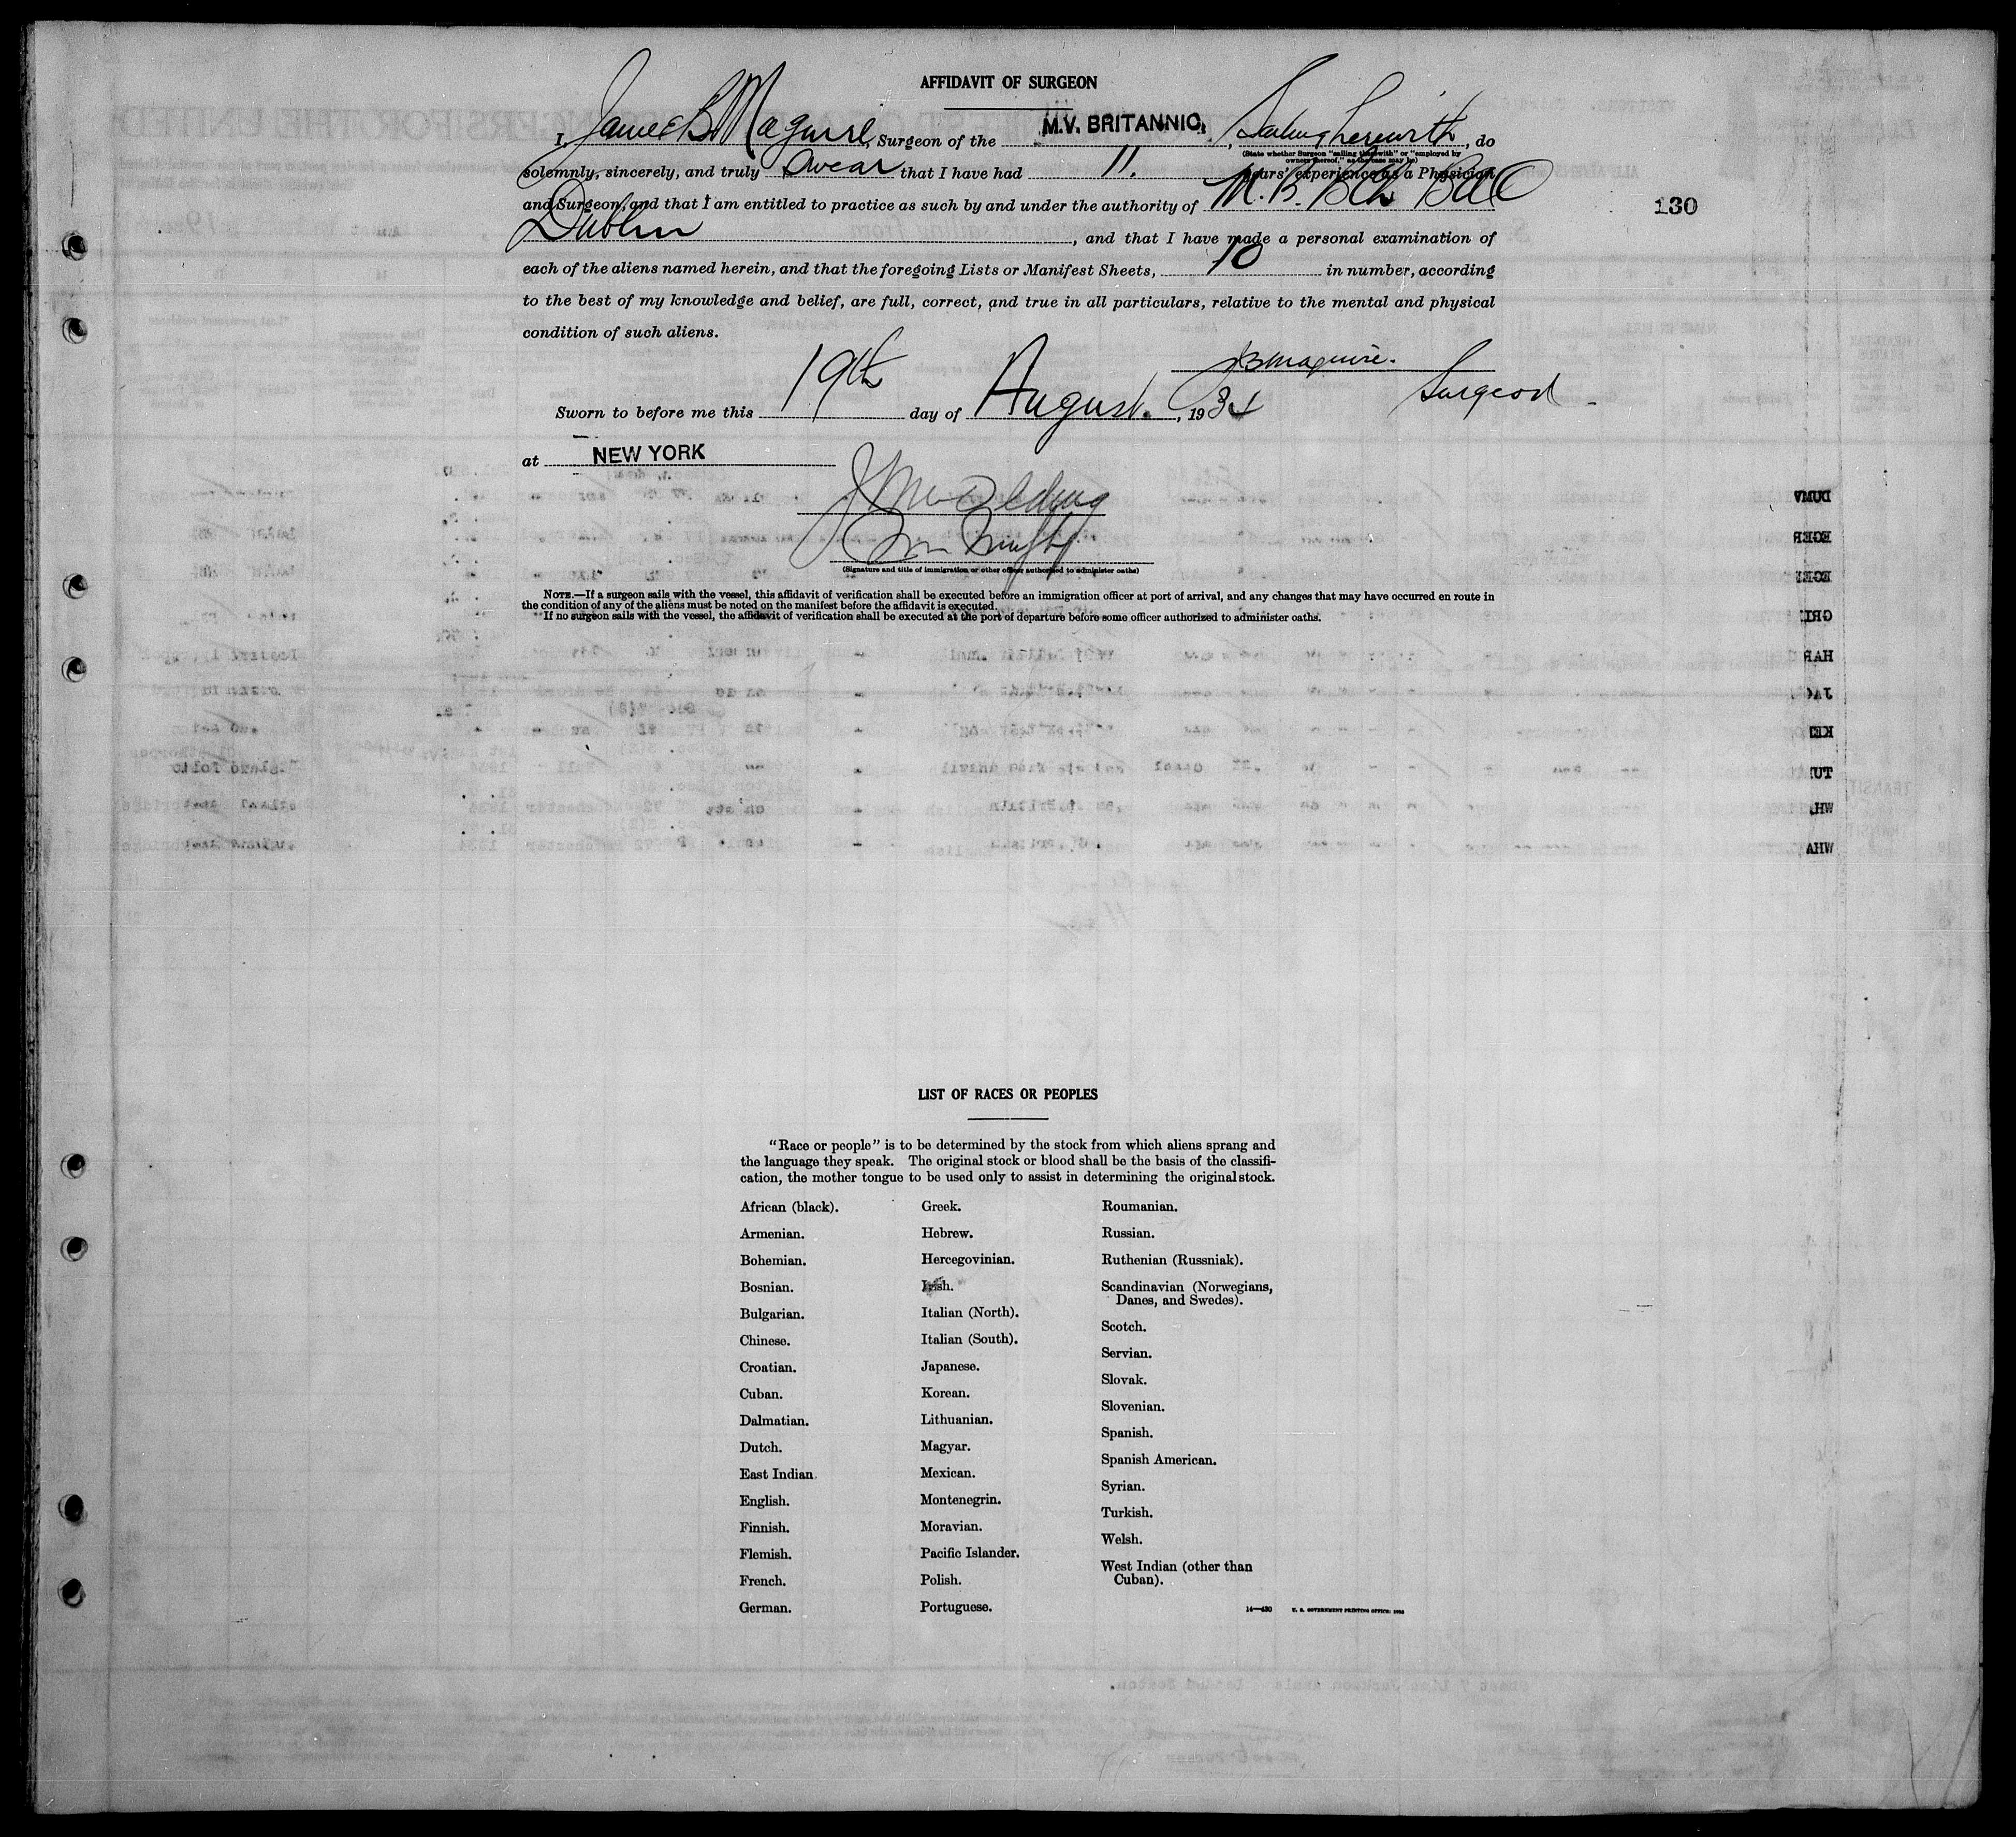 AFFIDAVIT OF SURGEON
I, James B. Maguire, Surgeon of the M.V. BRITANNIC, Sailing herewith, do
(State whether Surgeon "sailing therewith" or "employed by
owners thereof," as the case may be)
solemnly, sincerely, and truly swear that I have had 11. years' experience as a Physician
and Surgeon, and that I am entitled to practice as such by and under the authority of M.B. BCh
Dublin, and that I have made a personal examination of
130
each of the aliens named herein, and that the foregoing Lists or Manifest Sheets, 10 in number, according
to the best of my knowledge and belief, are full, correct, and true in all particulars, relative to the mental and physical
condition of such aliens.
JBMaguire.
Surgeon
Sworn to before me this 19th day of August. , 1934
at NEW YORK
(Signature and title of immigration or other officer authorized to administer oaths)
NOTE.—If a surgeon sails with the vessel, this affidavit of verification shall be executed before an immigration officer at port of arrival, and any changes that may have occurred en route in
the condition of any of the aliens must be noted on the manifest before the affidavit is executed.
If no surgeon sails with the vessel, the affidavit of verification shall be executed at the port of departure before some officer authorized to administer oaths.
LIST OF RACES OR PEOPLES
"Race or people" is to be determined by the stock from which aliens sprang and
the language they speak. The original stock or blood shall be the basis of the classifi-
cation, the mother tongue to be used only to assist in determining the original stock.
African (black).
Armenian.
Bohemian.
Bosnian.
Bulgarian.
Chinese.
Croatian.
Cuban.
Dalmatian.
Dutch.
East Indian.
English.
Finnish.
Flemish.
French.
German.
Greek.
Hebrew.
Hercegovinian.
Irish.
Italian (North).
Italian (South).
Japanese.
Korean.
Lithuanian.
Magyar.
Mexican.
Montenegrin.
Moravian.
Pacific Islander.
Polish.
Portuguese.
Roumanian.
Russian.
Ruthenian (Russniak).
Scandinavian (Norwegians,
Danes, and Swedes).
Scotch.
Servian.
Slovak.
Slovenian.
Spanish.
Spanish American.
Syrian.
Turkish.
Welsh.
West Indian (other than
Cuban).
14—430 U. S. GOVERNMENT PRINTING OFFICE: